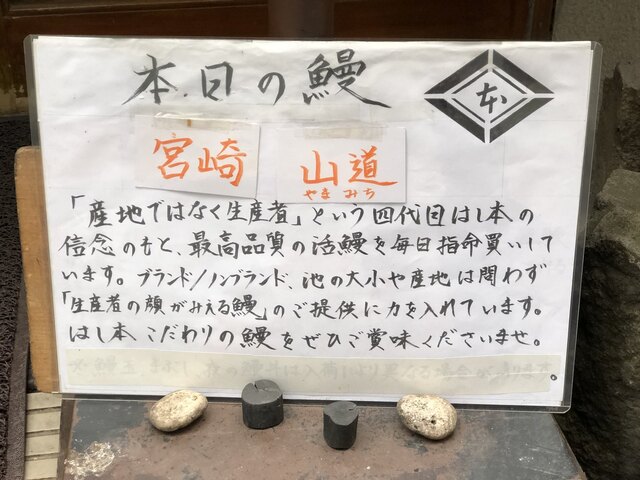 本日の鰻
本
宮崎
山道
やまみち
「産地ではなく生産者」という四代目はし本の
信念のもと、最高品質の活鰻を毎日指命買いして
います。ブランド/ノンブランド、池の大小や産地は問わず
「生産者の顔がみえる鰻」のご提供に力を入れています。
はし本こだわりの鰻をぜひご賞味くださいませ。